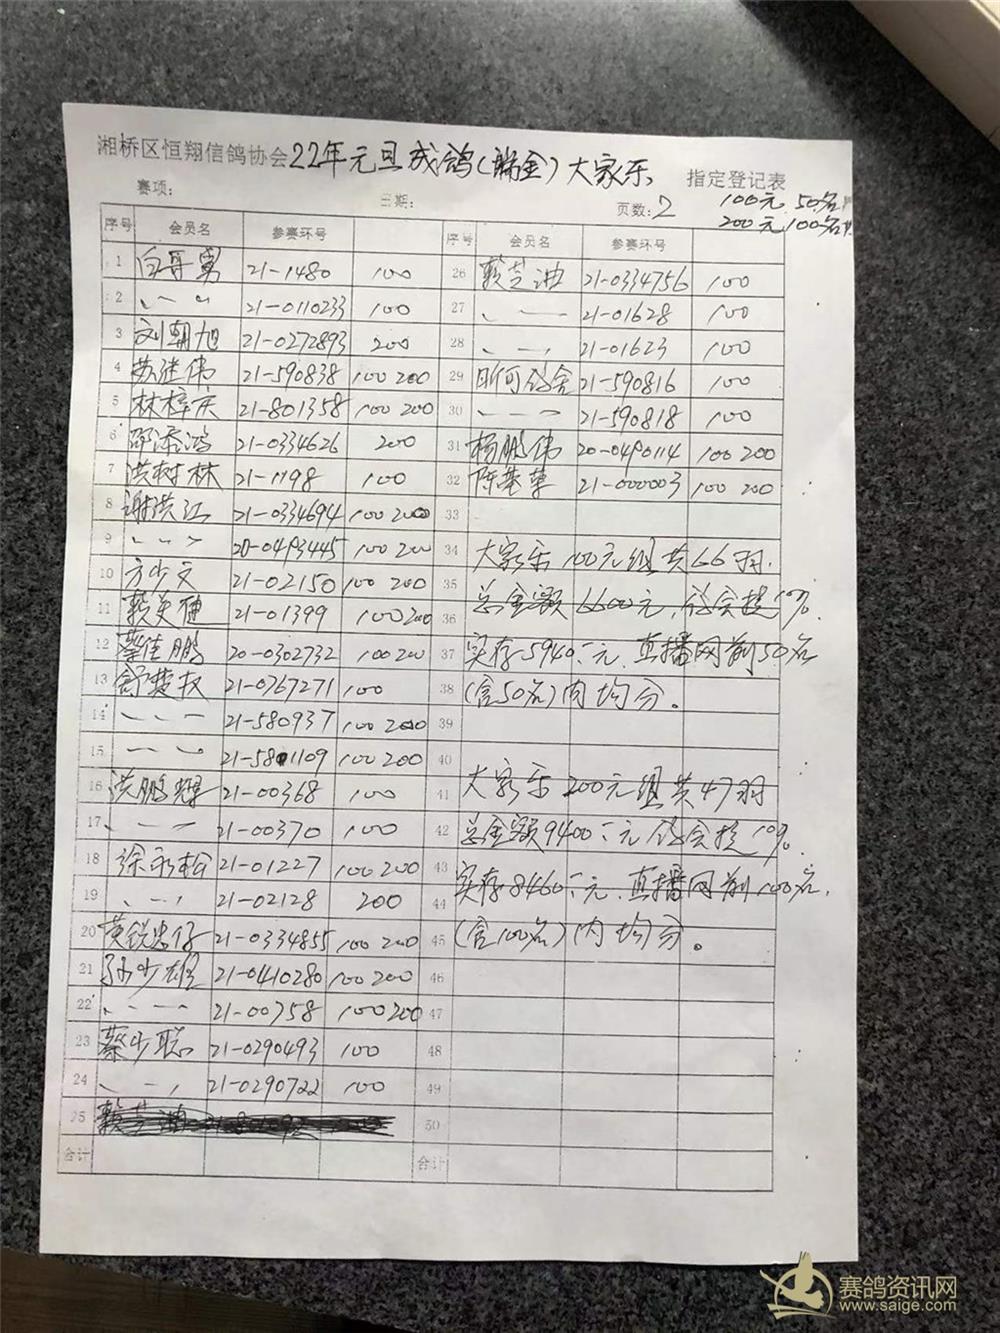 湘桥区恒翔信鸽协会22年元旦成鸽( 金)大家乐 指定登记表
赛项: 日期: 页数:2 100元 50名
200元100名
序号 会员名 参赛环号 序号 会员名 参赛环号
1 21-1480 100
2 〃 〃 21-0110233 100
3 刘朝旭 21-0272893 200
4 苏继伟 21-590838 100 200
5 林梓庆 21-801358 100 200
6 邵添鸿 21-0334626 200
7 洪树林 21-1198 100
8 谢洪江 21-0334694 100 200
9 〃 〃 20-0493445 100 200
10 方少文 21-02150 100 200
11 赖英健 21-01399 100 200
12 蔡佳鹏 20-0302732 100 200
13 舒楚权 21-0767271 100
14 〃 〃 21-580937 100 200
15 〃 〃 21-5801109 100 200
16 洪鹏辉 21-00368 100
17 〃 〃 21-00370 100
18 徐永松 21-01227 100 200
19 〃 〃 21-02128 200
20 黄锐忠仔 21-0334855 100 200
21 孙少雄 21-0410280 100 200
22 〃 〃 21-00758 100 200
23 蔡少聪 21-0290493 100
24 〃 〃 21-0290722 100
25
合计
26 赖芝迪 21-0334756 100
27 〃 〃 21-01628 100
28 〃 〃 21-01623 100
29 21-590816 100
30 〃 〃 21-590818 100
31 杨鹏伟 20-0490114 100 200
32 陈 21-000003 100 200
33
34 大家乐100元组共66羽.
35
36 总金额6600元,协会提10%
37 实存5940元.直播网前50名
38 (含50名)内均分。
39
40
41 大家乐200元组共47羽
42 总金额9400元协会提10%
43
44 实存8460元.直播网前100名,
45 (含100名)内均分。
46
47
48
49
50
合计
赛鸽资讯网
www.saige.com